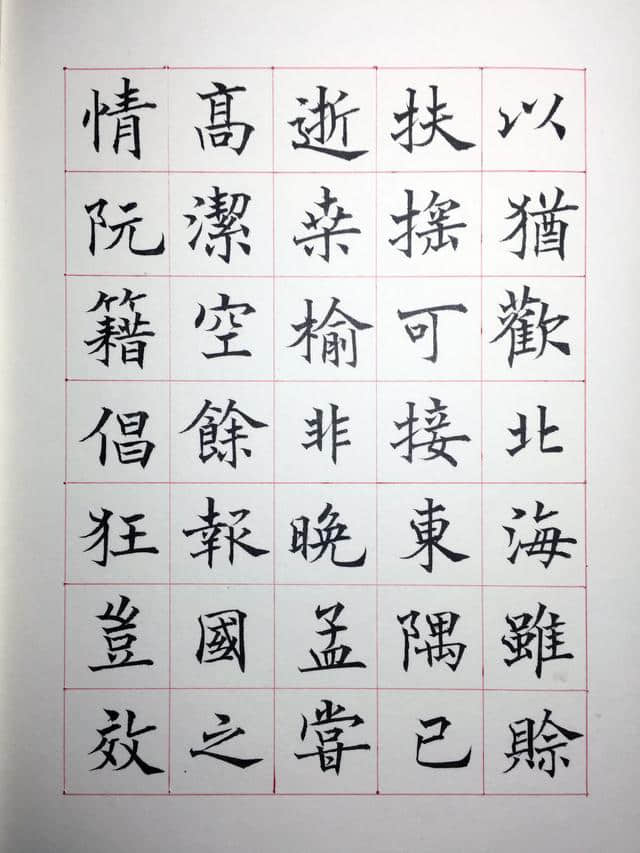 以猶歡北海雖賒
扶搖可接東隅已
逝桒榆非晚孟嘗
高潔空餘報國之
情阮籍倡狂豈效